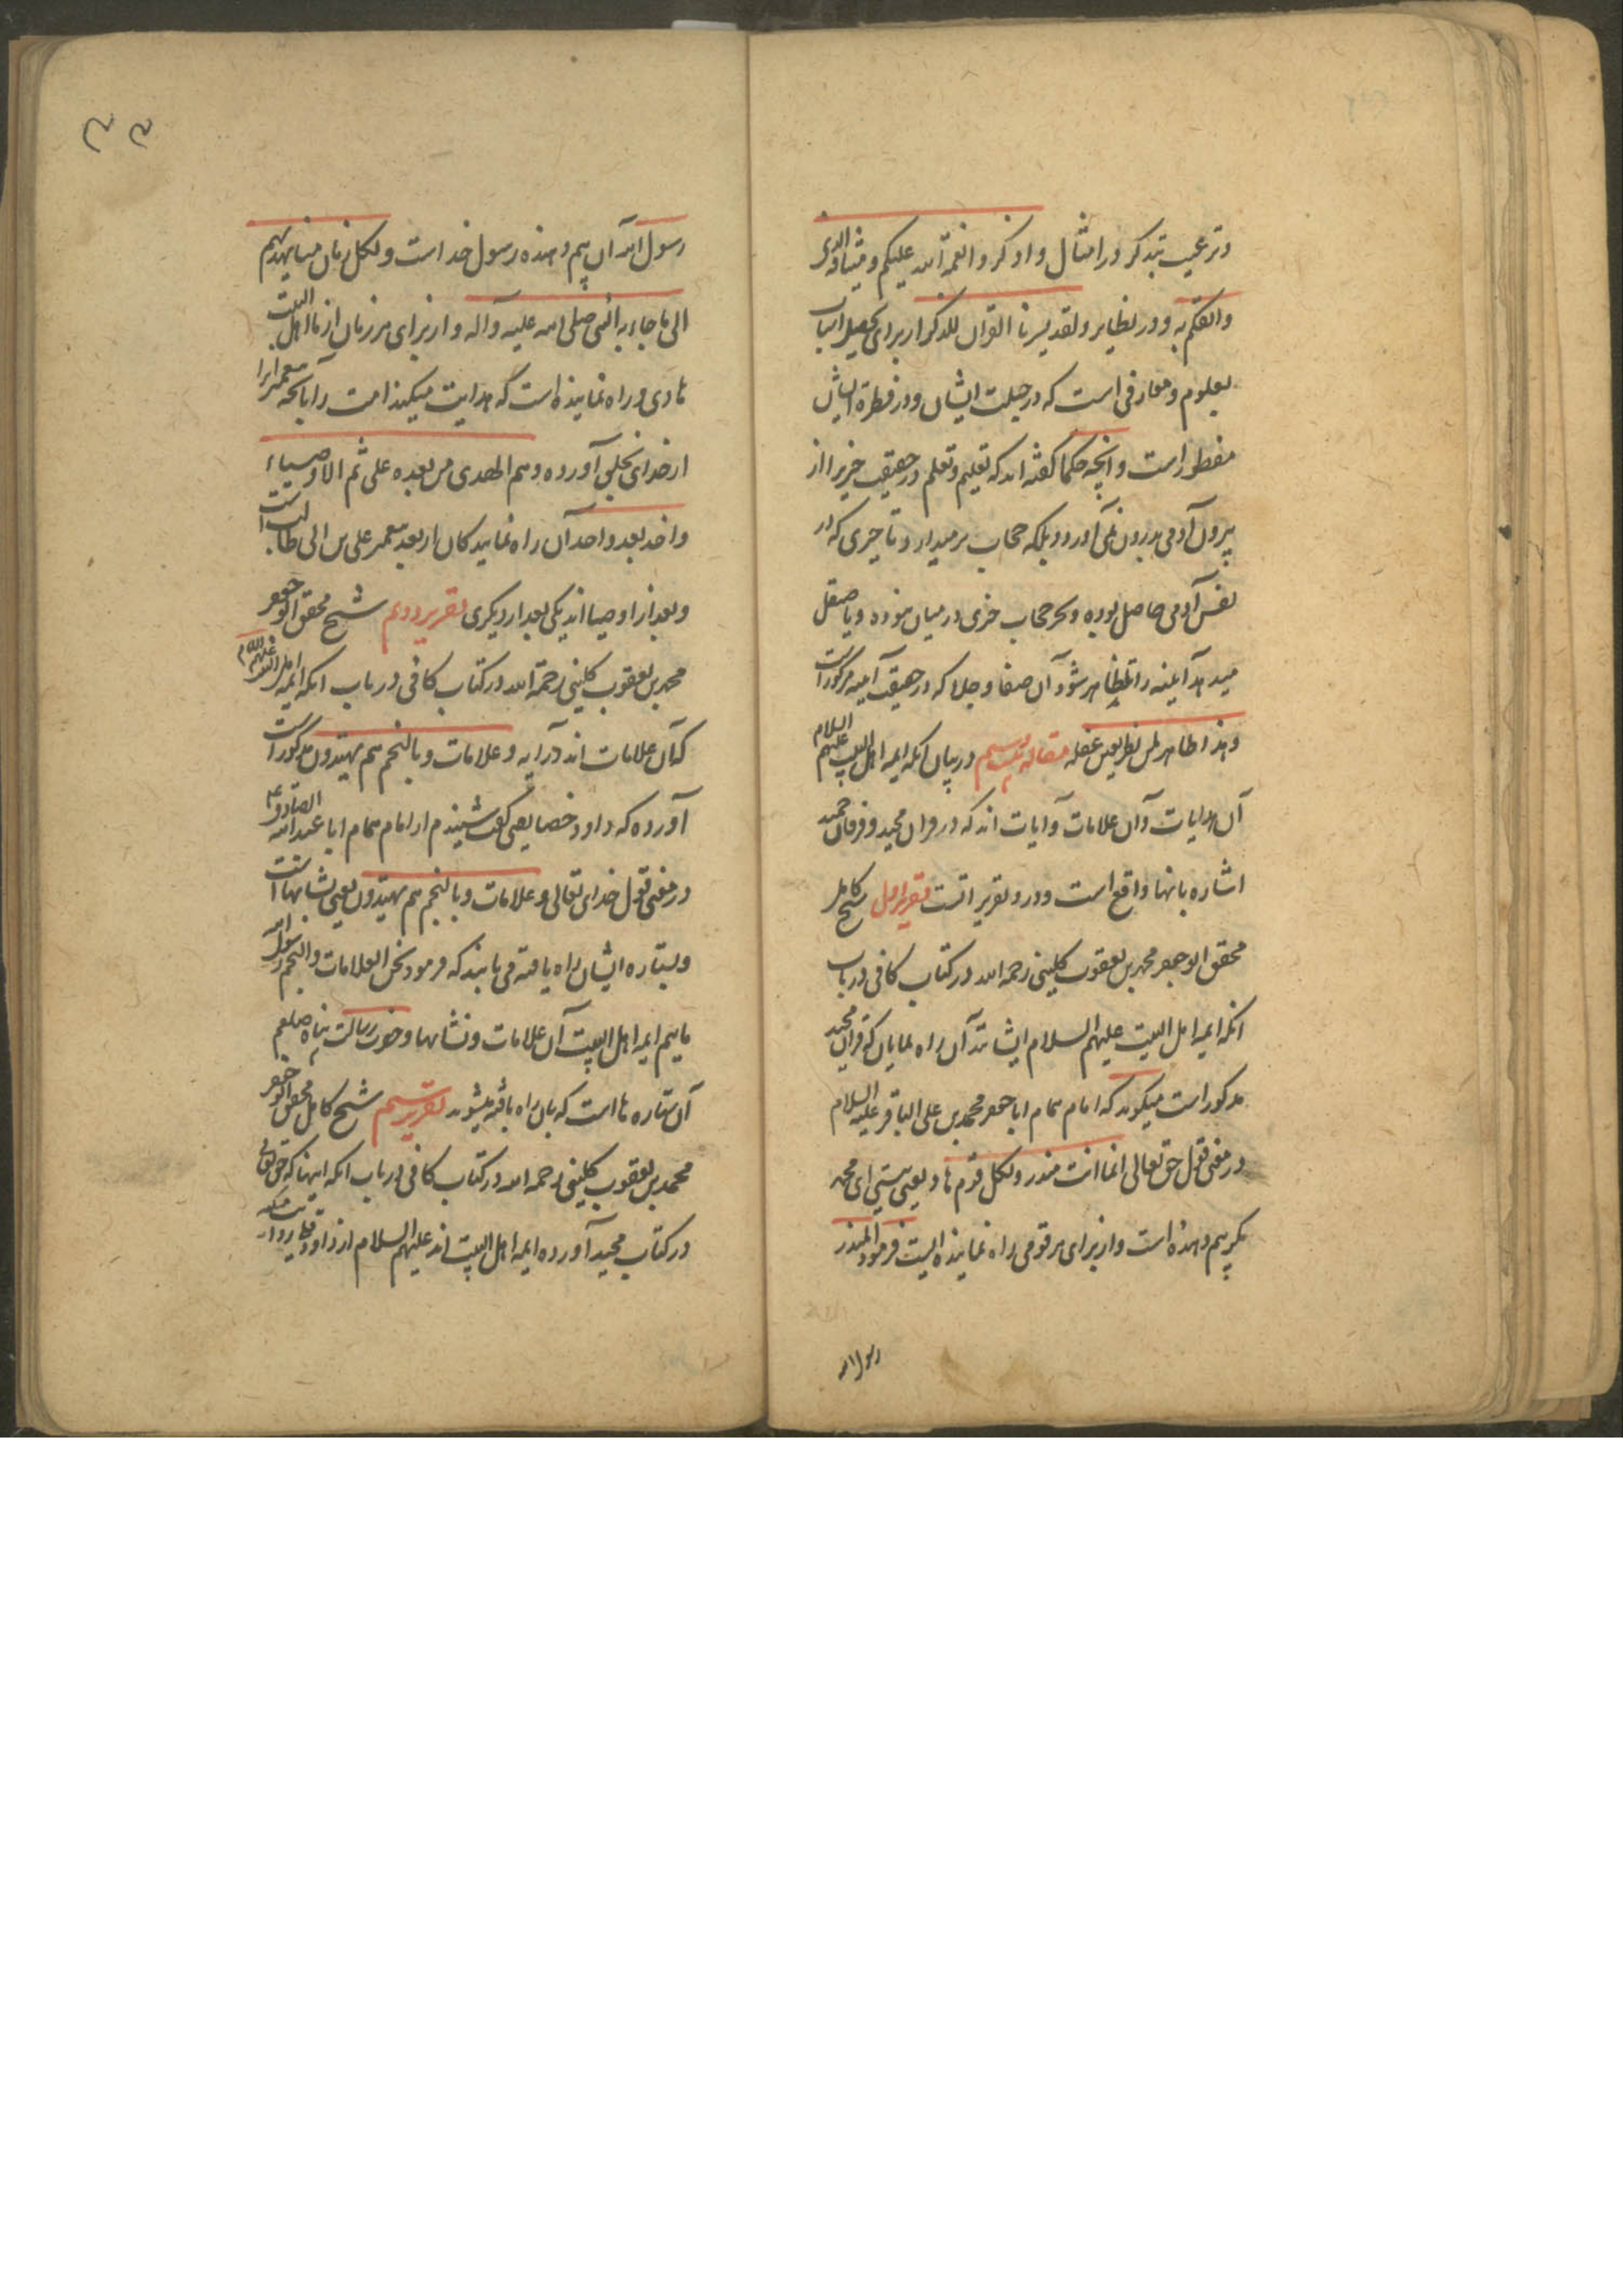 وترغیب بتذکر در امثال واذکروا نعمة الله علیکم ومیثاقه الذی
واثقکم به ودر نظایر ولقد یسرنا القرآن للذکر از برای تحصیل اسباب
بعلوم ومعارفی است که در جبلت ایشان ودر فطرة ایشان
مفطور است وآنچه حکما کفته اند که تعلیم وتعلم در حقیقت چیزیرا از
بیرون آدمی بدرون نمی آورد وبلکه حجاب برمیدارد تا چیزی که در
نفس آدمی حاصل بوده وبجز حجاب چیزی در میان نبوده ویا صیقل
میدهد آینه را تا ظاهر شود آن صفا وجلا که در حقیقت آینه مرکوز است
وهذا ظاهر لمن نظر بعین عقله مقاله بیستم در بیان آنکه ایمه اهل البیت علیهم السلام
آن هدایات وآن علامات وآیات اند که در قرآن مجید وفرقان حمید
اشاره بانها واقع است ودرو تقریر است تقریر اول شیخ کامل
محقق ابو جعفر محمد بن یعقوب کلینی رحمه الله در کتاب کافی در باب
آنکه ایمه اهل البیت علیهم السلام ایشانند آن راه نمایان که قرآن مجید
مذکور است میکوید که امام همام ابا جعفر محمد بن علی الباقر علیه السلام
در معنی قول حق تعالی انما انت منذر ولکل قوم هاد یعنی هستی ای محمد
مکر بیم دهنده است واز برای هر قومی راه نماینده ایست فرمود المنذر
رسول الله
۳۳
رسول الله آن بیم دهنده رسول خداست ولکل زمان منا یهدیهم
الی ما جاء به النبی صلی الله علیه وآله واز برای هر زمان از ما اهل البیت
هادی وراه نماینده است که هدایت میکند امت را بآنچه پیغمبر آنرا
از خدای بخلق آورده وهم الهدی من بعده علی ثم الاوصیاء
واحد بعد واحد آن راه نمایندکان از بعد پیغمبر علی بن ابی طالب است
وبعد از او اوصیا اند یکی بعد از دیکری تقریر دوم شیخ محقق ابو جعفر
محمد بن یعقوب کلینی رحمة الله در کتاب کافی در باب آنکه ایمه اهل البیت علیهم السلام
که آن علامات اند در آیه وعلامات وبالنجم هم یهتدون مذکور است
آورده که داود خصاص یعنی کفت شنیدم از امام همام ابا عبد الله الصادق ع
در معنی قول خدای تعالی وعلامات وبالنجم هم یهتدون یعنی نشانها است
وبستاره ایشان راه یافته می یابند که فرمود نحن العلامات والنجم رسول الله
ماییم ایمه اهل البیت آن علامات ونشانها وحضرت رسالت پناه صلعم
آن ستاره ها است که بان راه یافته میشوند تقریر سیم شیخ کامل محقق ابو جعفر
محمد بن یعقوب کلینی رحمه الله در کتاب کافی در باب آنکه اینها که حق تعالی
در کتاب مجید آورده ایمه اهل البیت اند علیهم السلام از داود